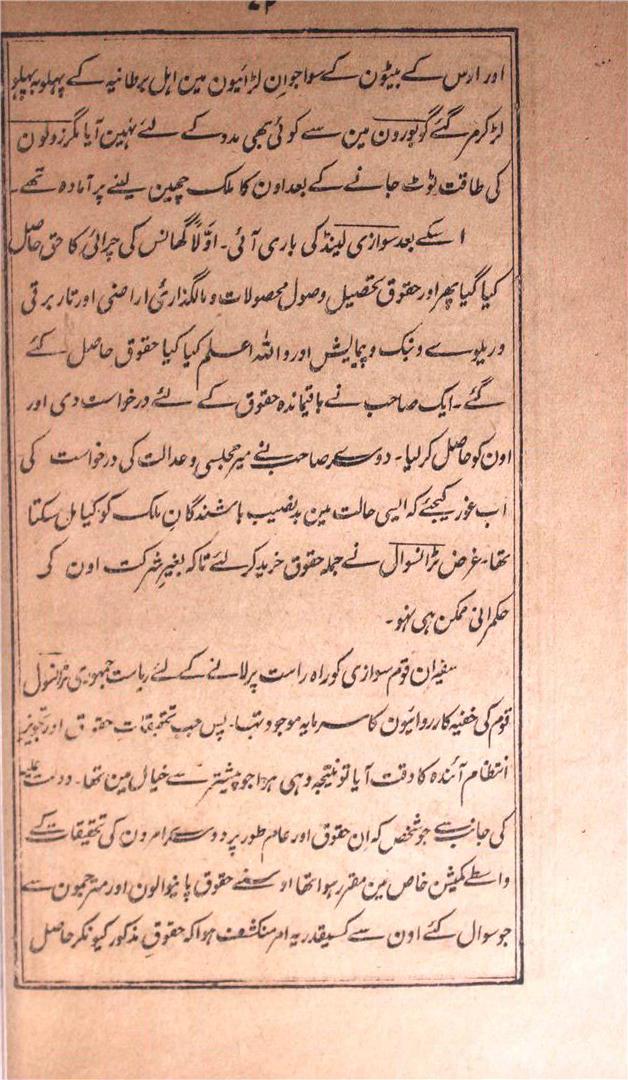 اور ارس کے بیٹون کے سوا جو ان لڑائیون مین اہل برطانیہ کے پہلو بہ پہلو
لڑکر مر گئے گو بورون مین سے کوئی بھی مدد کے لئے نہین آیا مگر زولون
کی طاقت ٹوٹ جانے کے بعد اون کا ملک چھین لینے پر آمادہ تھے۔
اسکے بعد سوازی لینڈ کی باری آئی۔ اوّلاً گھانس کی چرائی کا حق حاصل
کیا گیا پھر اور حقوق تحصیل وصول محصولات و مالگذاری اراضی اور تار برقی
و ریلوے و بنک و پیمایش اور واللہ اعلم کیا کیا حقوق حاصل کئے
گئے۔ ایک صاحب نے باقیماندہ حقوق کے لئے درخواست دی اور
اون کو حاصل کر لیا۔ دوسرے صاحب نے میر مجلسی و عدالت کی درخواست کی
اب غور کیجئے کہ ایسی حالت مین بدنصیب باشندگانِ ملک کو کیا مل سکتا
تھا۔ غرض ٹرانسوال نے جملہ حقوق خرید کر لئے تاکہ بغیر شرکت اون کے
حکمرانی ممکن ہی نہو۔
سفیران قوم سوازی کو راہ راست پر لانے کے لئے ریاست جمہوری ٹرانسوال
قوم کی خفیہ کارروائیون کا سرمایہ موجود تھا۔ پس جب تحقیقات حقوق اور تجویز
انتظام آئندہ کا وقت آیا تو نتیجہ وہی ہوا جو پیشتر سے خیال مین تھا۔ دولت علیہ
کی جانب سے جو شخص کہ اِن حقوق اور عام طور پر دوسرے امرون کی تحقیقات کے
واسطے کمیشن خاص مین مقرر ہوا تھا اوسنے حقوق پانیوالون اور مترجمون سے
جو سوال کئے اون سے کسیقدر یہ امر منکشف ہوا کہ حقوقِ مذکور کیونکر حاصل